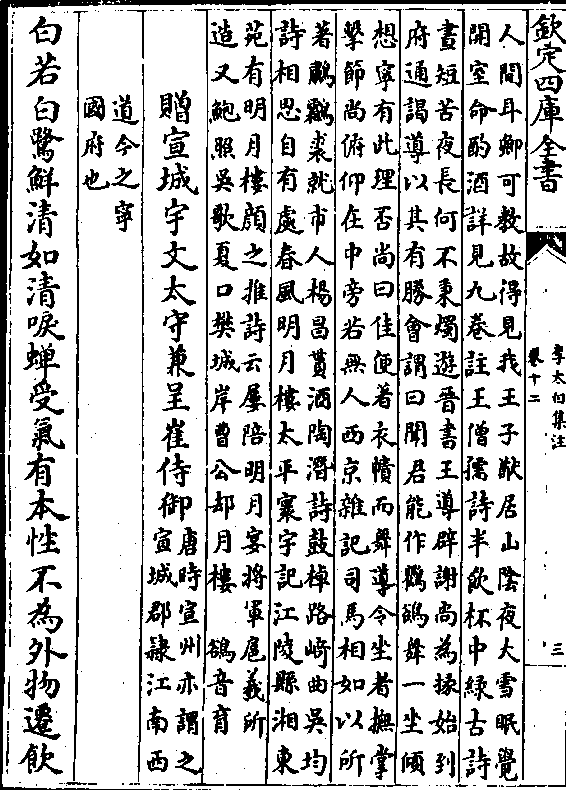 欽定四庫全書
李太白集注
卷十二
三
人間耳卿可教故得見我王子猷居山陰夜大雪眠覺
開室命酌酒詳見九卷註王僧孺詩半飲杯中緑古詩
晝短苦夜長何不秉燭遊晉書王導辟謝尚為掾始到
府通謁導以其有勝會謂曰聞君能作鸜鵒舞一坐傾
想寧有此理否尚曰佳便著衣幘而舞導令坐者撫掌
擊節尚俯仰在中旁若無人西京雜記司馬相如以所
著鷫鸘裘就市人楊昌貰酒陶潛詩鼓棹路崎曲吳均
詩相思自有處春風明月樓太平寰宇記江陵縣湘東
苑有明月樓顔之推詩云屢陪明月宴將軍扈義所
造又鮑照吳歌夏口樊城岸曹公却月樓 鵒音育
贈宣城宇文太守兼呈崔侍御
唐時宣州亦謂之
宣城郡隷江南西
道今之寧
國府也
白若白鷺鮮清如清唳蟬受氣有本性不為外物遷飲